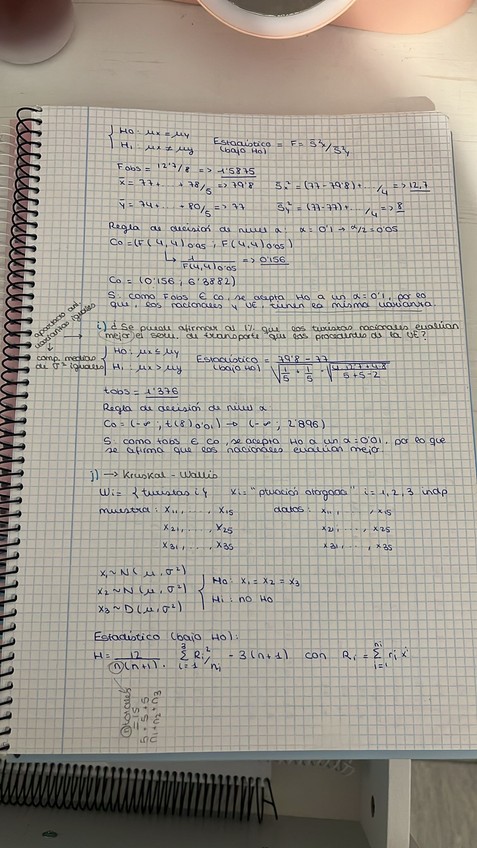 Ho: μx = μy
H1: μx ≠ μy Estadístico (bajo Ho) = F = S²x/S²y
Fobs = 12'7/8 => 1'5875
x̄ = 77+...+78/5 => 79'8 S²x = (77-79'8)+.../4 => 12,7
ȳ = 74+...+80/5 => 77 S²y = (77-77)+.../4 => 8
Regla de decisión de nivel α: α = 0'1 → α/2 = 0'05
Co = (F(4,4)0'05 ; F(4,4)0'05)
↳ 1/F(4,4)0'05 => 0'156
Co = (0'156 ; 6'3882)
S: como Fobs ∈ Co, se acepta Ho a un α = 0'1, por lo
que, los nacionales y UE, tienen la misma varianza.
apartado ant.
varianzas iguales
i) ¿Se puede afirmar al 1% que los turistas nacionales evalúan
mejor el serv. de transporte que los procedentes de la UE?
comp. medias
de σ² iguales
Ho: μx ≤ μy
H1: μx > μy Estadístico (bajo Ho) = 79'8 - 77 / √(1/5 + 1/5) · √(4·12'7+4·8 / 5+5-2)
tobs = 1'376
Regla de decisión de nivel α
Co = (-∞ ; t(8)0'01) → (-∞ ; 2'896)
S: como tobs ∈ Co, se acepta Ho a un α = 0'01, por lo que
se afirma que los nacionales evalúan mejor.
j) → Kruskal-Wallis
Wi = {turistas i} Xi = "ptuación otorgada" i = 1, 2, 3 indp
muestra: X11, ..., X15 datos: x11, ..., x15
X21, ..., X25 x21, ..., x25
X31, ..., X35 x31, ..., x35
X1 ~ N(μ, σ²)
X2 ~ N(μ, σ²)
X3 ~ D(μ, σ²)
Ho: X1 = X2 = X3
H1: no Ho
Estadístico (bajo Ho):
H = 12/n(n+1) · Σ(i=1, 3) Ri²/ni - 3(n+1) con Ri = Σ(i=1, ni) ri x'
n totales
= 15
5 + 5 + 5
n1 + n2 + n3